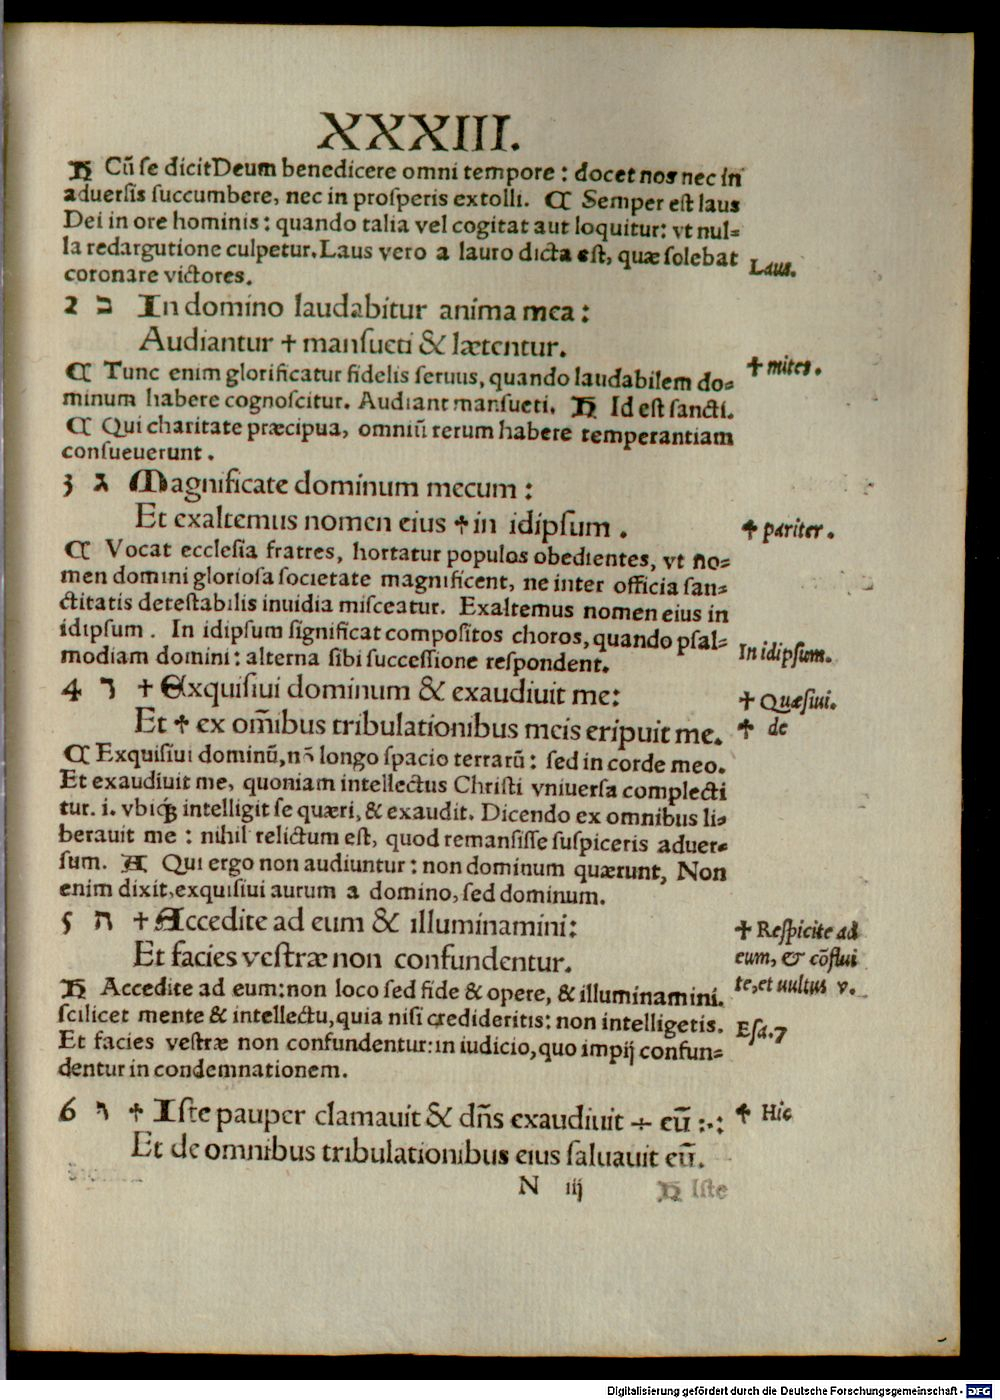 XXXIII.
H Cū se dicit Deum benedicere omni tempore : docet nos nec in
aduersis succumbere, nec in prosperis extolli. C Semper est laus
Dei in ore hominis : quando talia vel cogitat aut loquitur: vt nul=
la redargutione culpetur. Laus vero a lauro dicta est, quæ solebat
Laus.
coronare victores.
2 ב In domino laudabitur anima mea :
Audiantur ✝ mansueti & lætentur.
✝ mites.
C Tunc enim glorificatur fidelis seruus, quando laudabilem do=
minum habere cognoscitur. Audiant mansueti. H Id est sancti.
C Qui charitate præcipua, omniū rerum habere temperantiam
consueuerunt .
3 ג Magnificate dominum mecum :
Et exaltemus nomen eius ✝ in idipsum .
✝ pariter .
C Vocat ecclesia fratres, hortatur populos obedientes, vt no=
men domini gloriosa societate magnificent, ne inter officia san=
ctitatis detestabilis inuidia misceatur. Exaltemus nomen eius in
idipsum . In idipsum significat compositos choros, quando psal=
In idipsum.
modiam domini : alterna sibi successione respondent.
4 ד ✝ Exquisiui dominum & exaudiuit me:
✝ Quæsiui.
Et ✝ ex om̄ibus tribulationibus meis eripuit me.
✝ de
C Exquisiui dominū, nō longo spacio terrarū : sed in corde meo.
Et exaudiuit me, quoniam intellectus Christi vniuersa complecti
tur. i. vbiqꝫ intelligit se quæri, & exaudit. Dicendo ex omnibus li=
berauit me : nihil relictum est, quod remansisse suspiceris aduer=
sum. A Qui ergo non audiuntur : non dominum quærunt, Non
enim dixit, exquisiui aurum a domino, sed dominum.
5 ה ✝ Accedite ad eum & illuminamini:
✝ Respicite ad
Et facies vestræ non confundentur.
eum, & cōflui
te, et uultus v.
H Accedite ad eum: non loco sed fide & opere, & illuminamini.
scilicet mente & intellectu, quia nisi credideritis: non intelligetis.
Esa.7
Et facies vestræ non confundentur: in iudicio, quo impij confun=
dentur in condemnationem.
6 ו ✝ Iste pauper clamauit & dn̄s exaudiuit ÷ eū :·:
✝ Hic
Et de omnibus tribulationibus eius saluauit eū.
N iij
H Iste
Digitalisierung gefördert durch die Deutsche Forschungsgemeinschaft - DFG